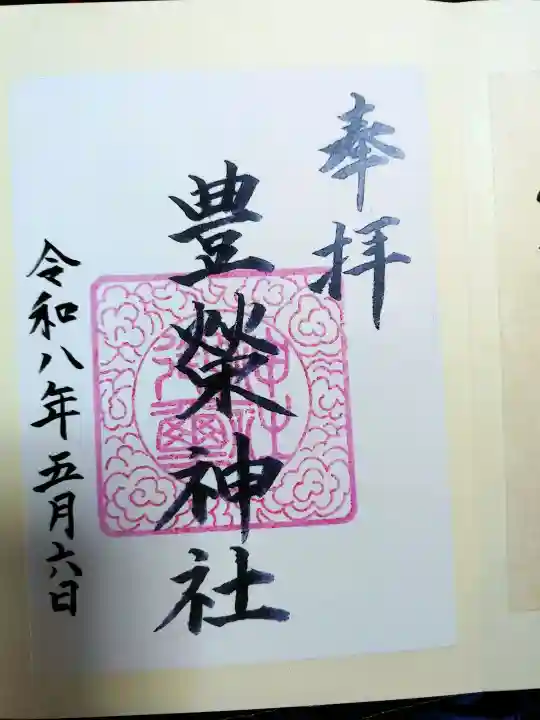 奉拝
豊榮神社
令和八年五月六日